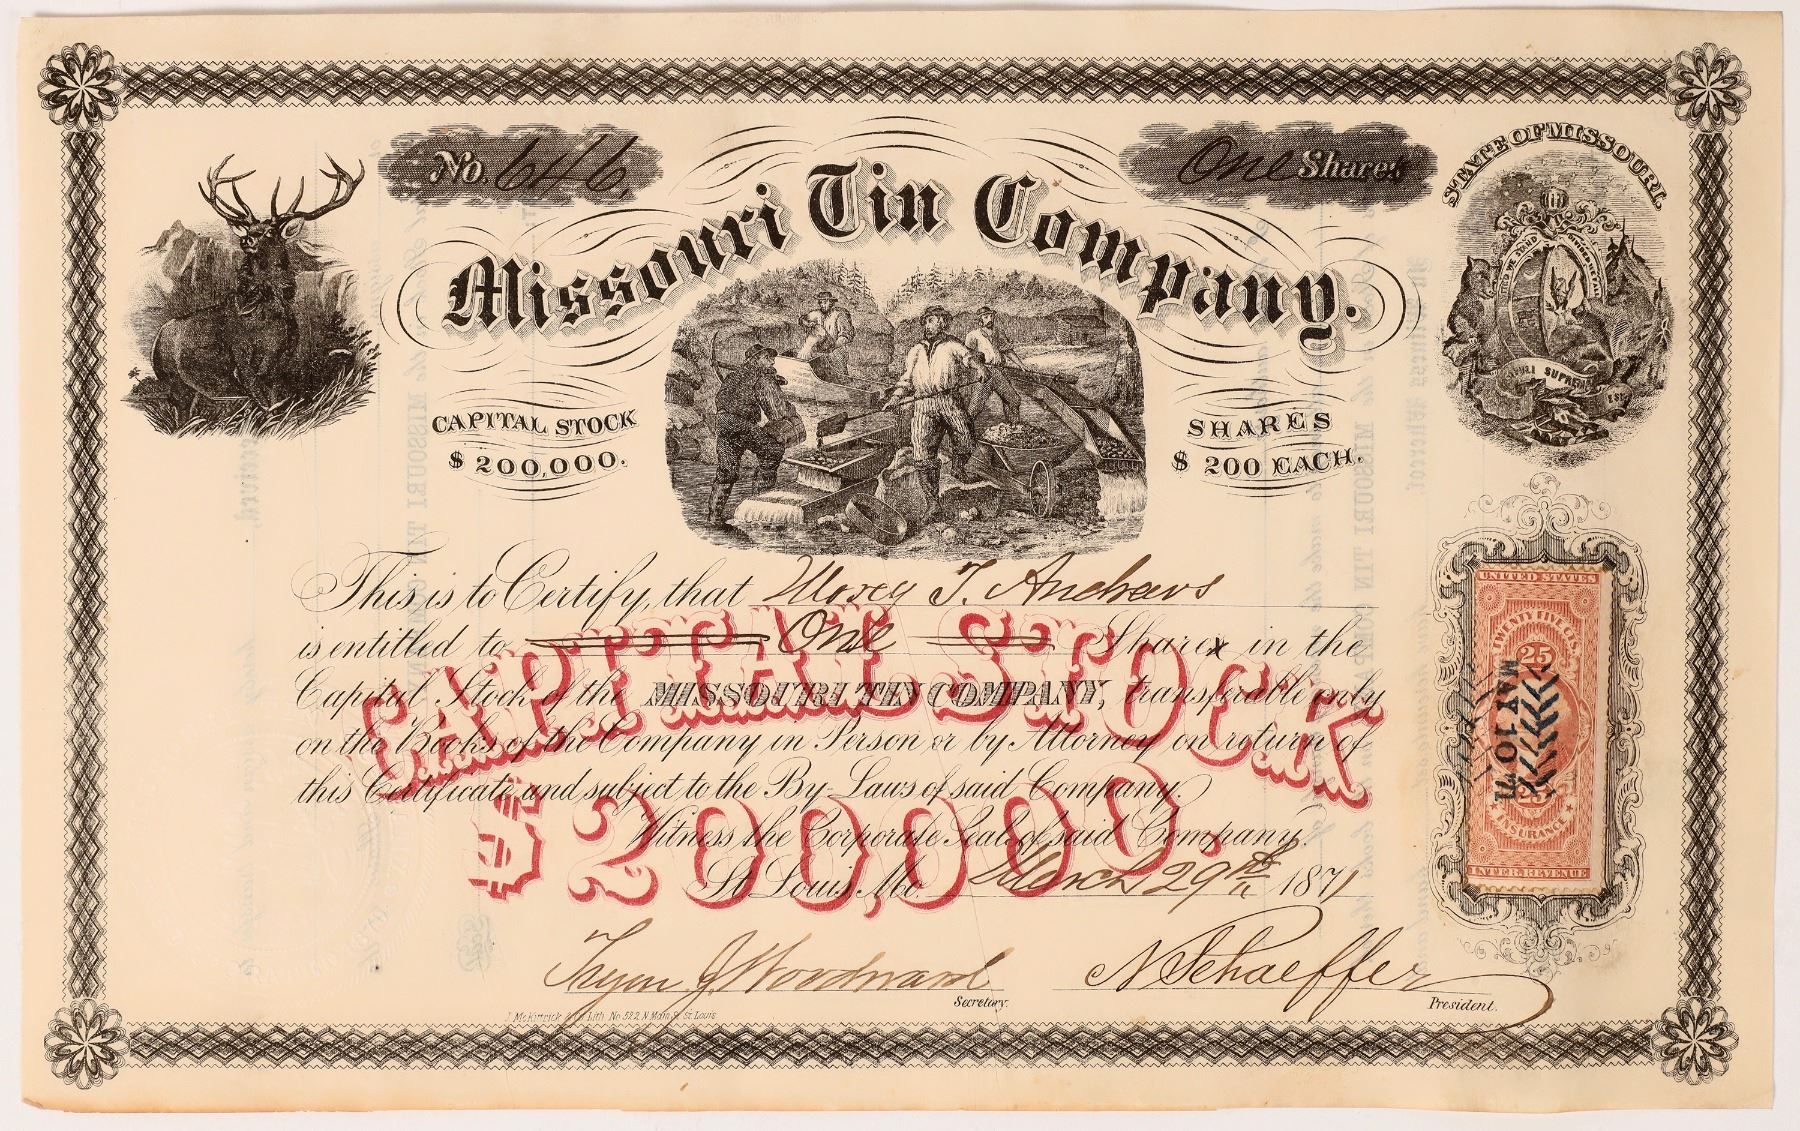 No. 646.
One Shares
STATE OF MISSOURI.
Missouri Tin Company.
UNITED WE STAND DIVIDED WE FALL
CAPITAL STOCK
$ 200,000.
SHARES
$ 200 EACH.
This is to Certify, that Morey T. Andrews
is entitled to One Share in the
Capital Stock of the MISSOURI TIN COMPANY, transferable only
on the Books of the Company in Person or by Attorney on return of
this Certificate and subject to the By-Laws of said Company.
CAPITAL STOCK
$200,000.
Witness the Corporate Seal of said Company.
St. Louis, Mo. March 29th 1871
UNITED STATES
TWENTY FIVE CTS.
25
MAY 10 71
25
INSURANCE
INTER. REVENUE
Tryon J Woodward
Secretary.
N Schaeffer
President.
J. McKittrick & Co. Lith. No. 522 N. Main St. St. Louis